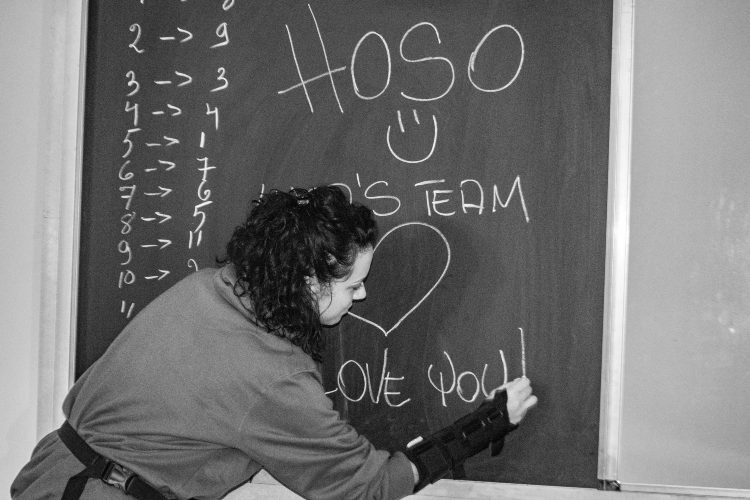 HOSO
2 -> 9
3 -> 3
4 -> 4
5 -> 1
6 -> 7
7 -> 6
8 -> 5
9 -> 11
10 ->
11
'S TEAM
LOVE YOU!